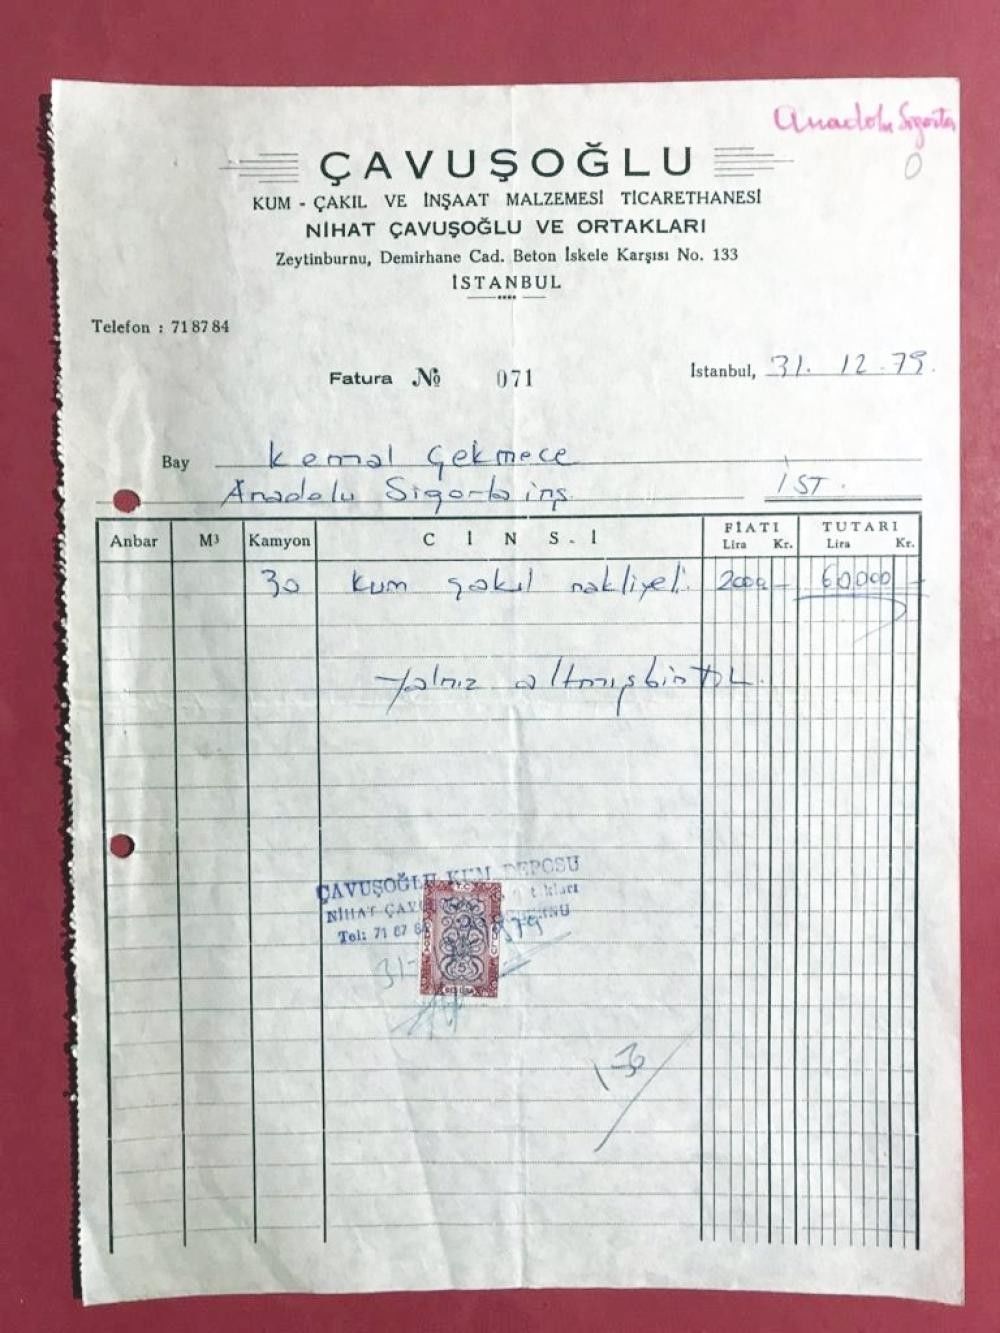 Anadolu Sigorta
0
ÇAVUŞOĞLU
KUM - ÇAKIL VE İNŞAAT MALZEMESİ TİCARETHANESİ
NİHAT ÇAVUŞOĞLU VE ORTAKLARI
Zeytinburnu, Demirhane Cad. Beton İskele Karşısı No. 133
İSTANBUL
Telefon : 71 87 84
Fatura № 071
İstanbul, 31. 12. 79.
Bay Kemal Çekmece
Anadolu Sigorta inş. İST.
Anbar M³ Kamyon CİNSİ FİATI TUTARI
Lira Kr. Lira Kr.
30 kum çakıl nakliyeli 2000 - 60,000 -
Yalnız altmışbin TL.
ÇAVUŞOĞLU KUM DEPOSU
NİHAT
Tel: 71 87
31- 79
T.C.
5